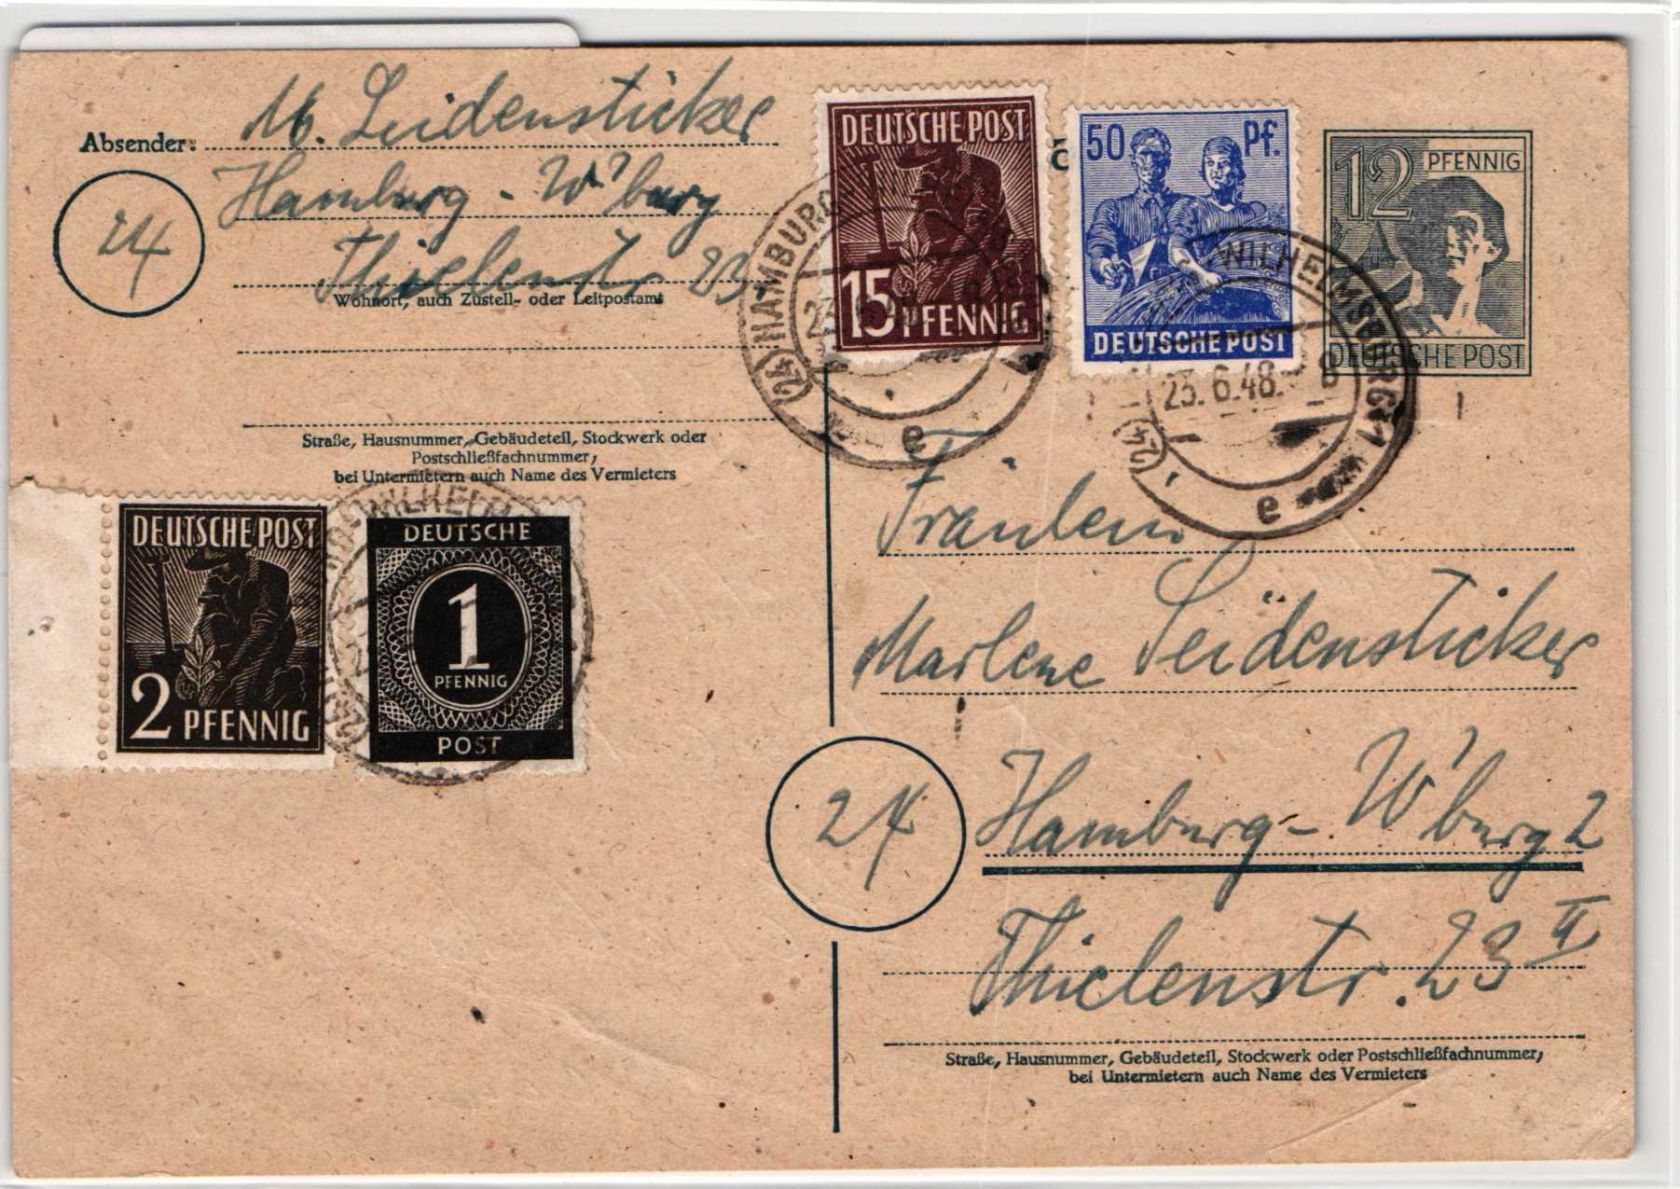 Absender:
M. Leidensticker
Hamburg - W'burg
24
Thielenstr. 23
Wohnort, auch Zustell- oder Leitpostamt
Straße, Hausnummer, Gebäudeteil, Stockwerk oder
Postschließfachnummer,
bei Untermietern auch Name des Vermieters
DEUTSCHE POST
15 PFENNIG
50 Pf.
DEUTSCHE POST
12 PFENNIG
DEUTSCHE POST
(24) HAMBURG
e
WILHELMSBURG 1
23.6.48. 8
(24)
e
DEUTSCHE POST
2 PFENNIG
WILHELM
DEUTSCHE
1
PFENNIG
POST
Fräulein
Marlene Leidensticker
24
Hamburg - W'burg 2
Thielenstr. 23 II
Straße, Hausnummer, Gebäudeteil, Stockwerk oder Postschließfachnummer,
bei Untermietern auch Name des Vermieters